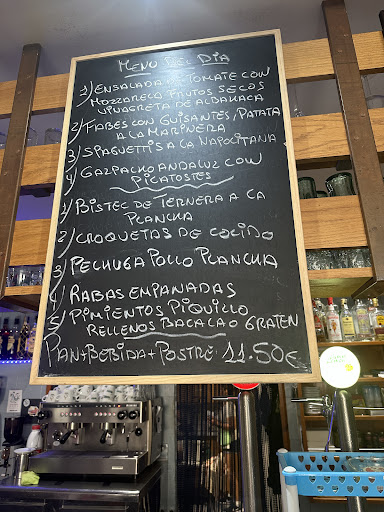 MENU DEL DIA
1) ENSALADA DE TOMATE CON
MOZZARELA FRUTOS SECOS
VINAGRETA DE ALBAHACA
2) FABES CON GUISANTES, PATATA
A LA MARINERA
3) SPAGUETTIS A LA NAPOLITANA
4) GAZPACHO ANDALUZ CON
PICATOSTES
1) BISTEC DE TERNERA A LA
PLANCHA
2) CROQUETAS DE COCIDO
3) PECHUGA POLLO PLANCHA
4) RABAS EMPANADAS
5) PIMIENTOS PIQUILLO
RELLENOS BACALAO GRATEN
PAN+BEBIDA+POSTRE 11.50€